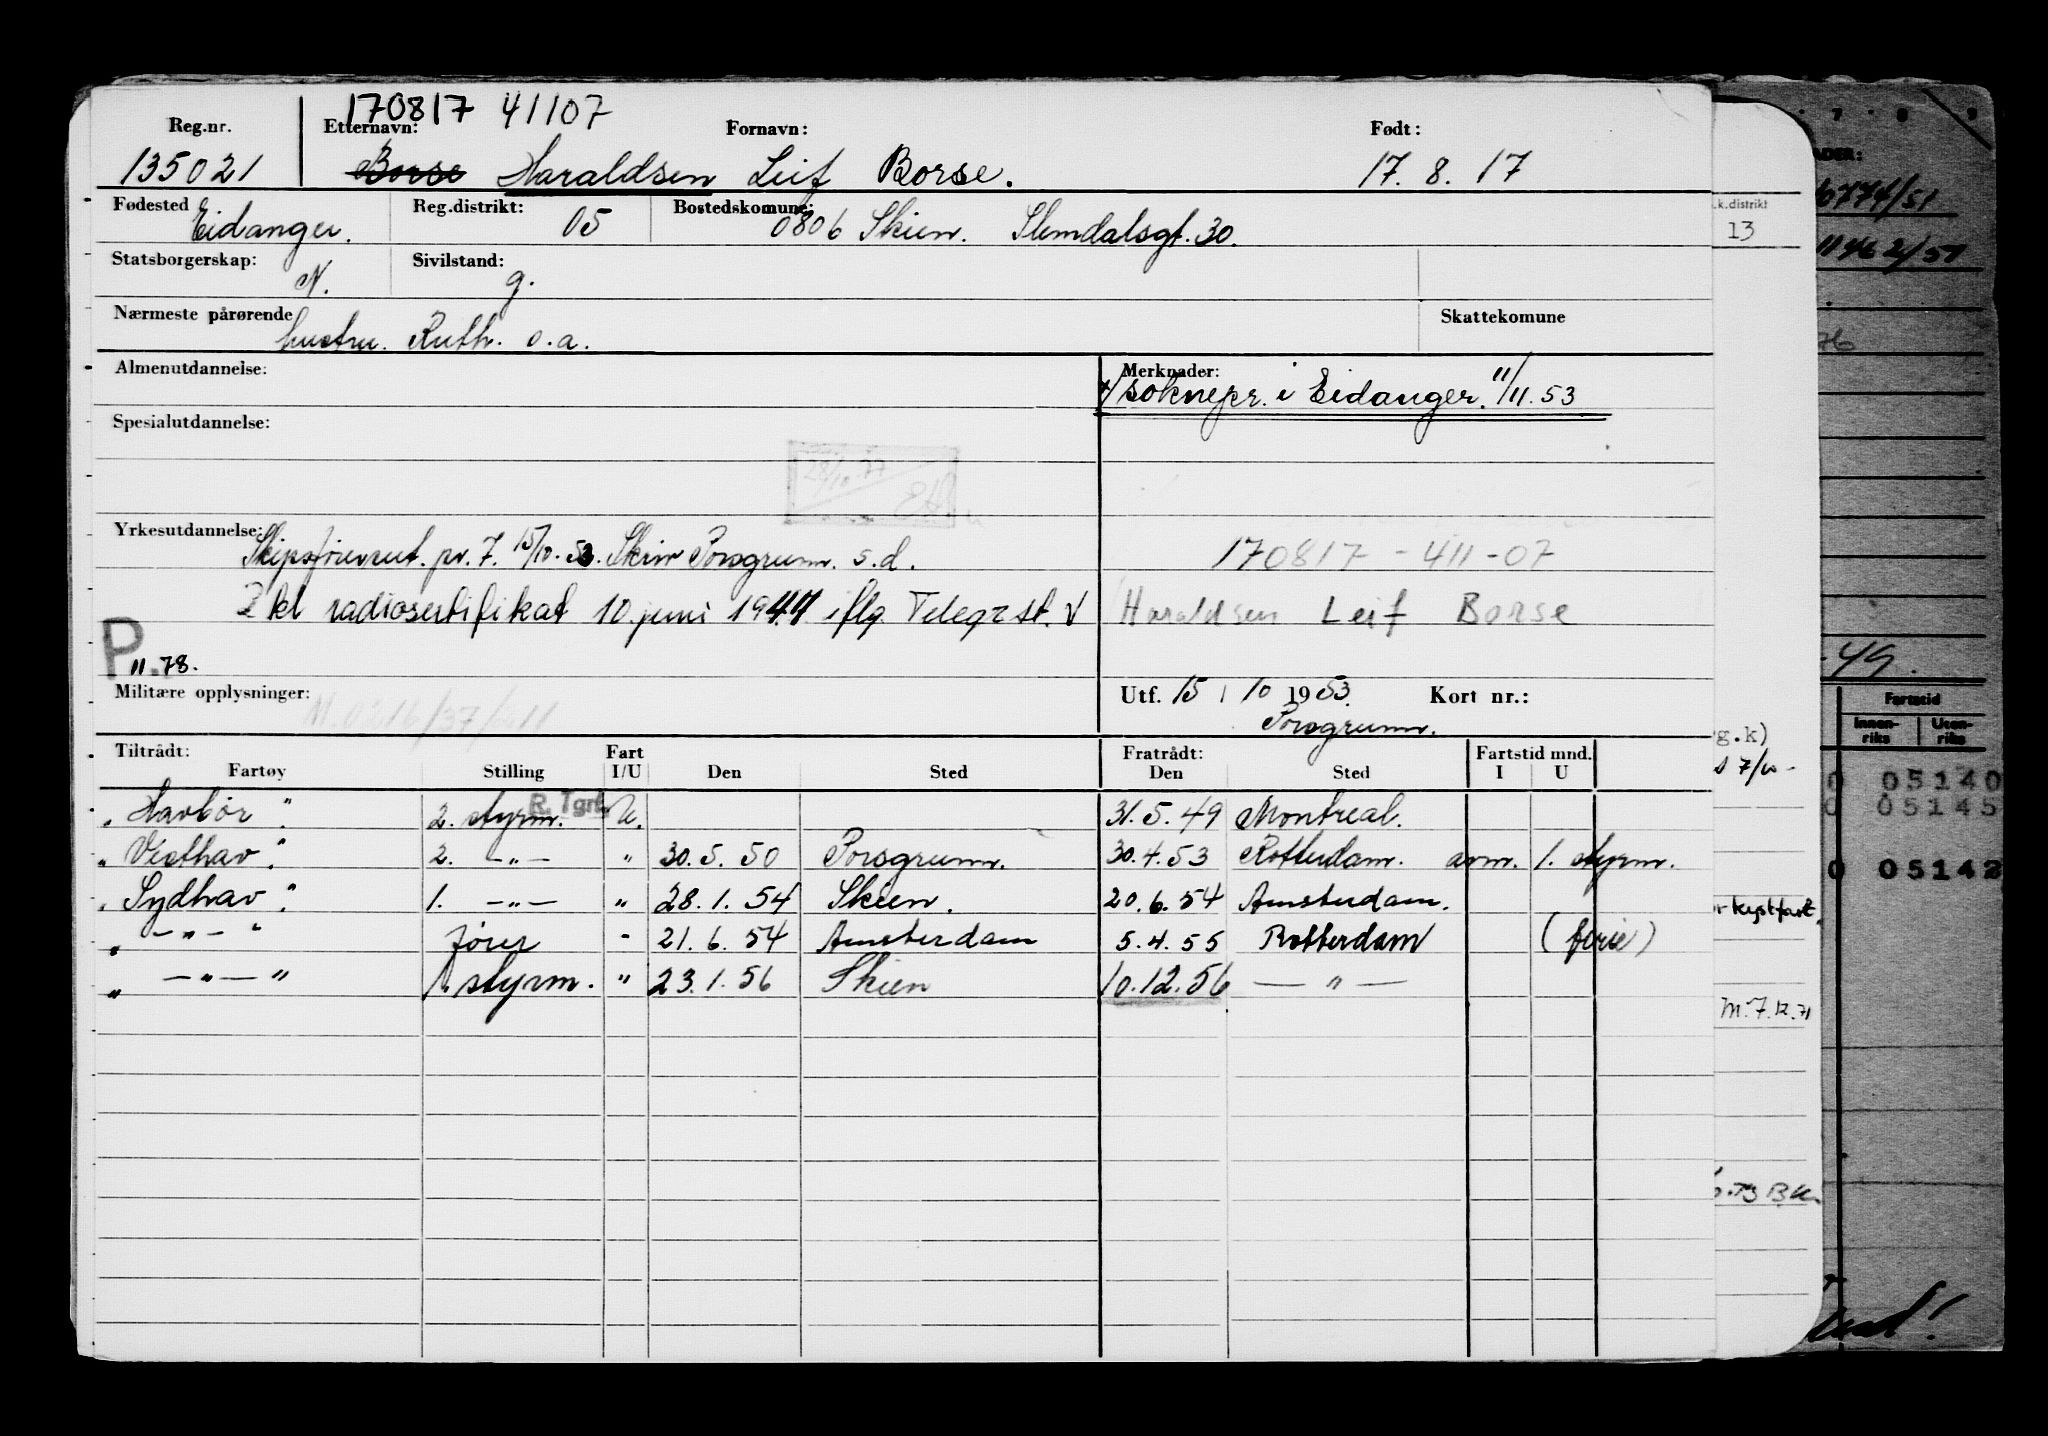 170817 41107
Reg.nr. Etternavn: Fornavn: Født:
135021 Borse Haraldsen Leif Borse. 17. 8. 17
Fødested Eidanger. Reg.distrikt: 05 Bostedskomune: 0806 Skien. Slemdalsgt. 30.
k.distrikt
13
Statsborgerskap: N. Sivilstand: g.
Nærmeste pårørende hustru. Ruth. o.a. Skattekomune
Almenutdannelse: Merknader:
soknepr. i Eidanger. 11/11.53
Spesialutdannelse:
28/10 77
Yrkesutdannelse: pr. 7. 15/10.53. Skien Porsgrunn. s.d.
170817 - 411-07
2 kl radiosertifikat 10 juni 1947 iflg. Telegr st. V
Haraldsen Leif Borse
P. 11.78.
Militære opplysninger:
Utf. 15 / 10 1953. Kort nr.:
Porsgrunn.
Tiltrådt: Fart Fratrådt: Fartstid mnd.
Fartøy Stilling I/U Den Sted Den Sted I U
"Havbør" 2. styrm. R. Tgrf. U. 31. 5. 49 Montreal.
"Vesthav". 2. —"— " 30. 5. 50 Porsgrunn. 30. 4. 53 Rotterdam. avm. 1. styrm.
"Sydhav". 1. —"— " 28. 1. 54 Skien. 20. 6. 54 Amsterdam.
" —"— " fører " 21. 6. 54 Amsterdam 5. 4. 55 Rotterdam (ferie)
" —"— " 1. styrm. " 23. 1. 56 Skien 10. 12. 56 —"—
6774/51
1462/51
76
-49.
Fartstid
Innen-riks Uten-riks
g.k)
05140
05145
05142
kystfart
M. 7.12.71